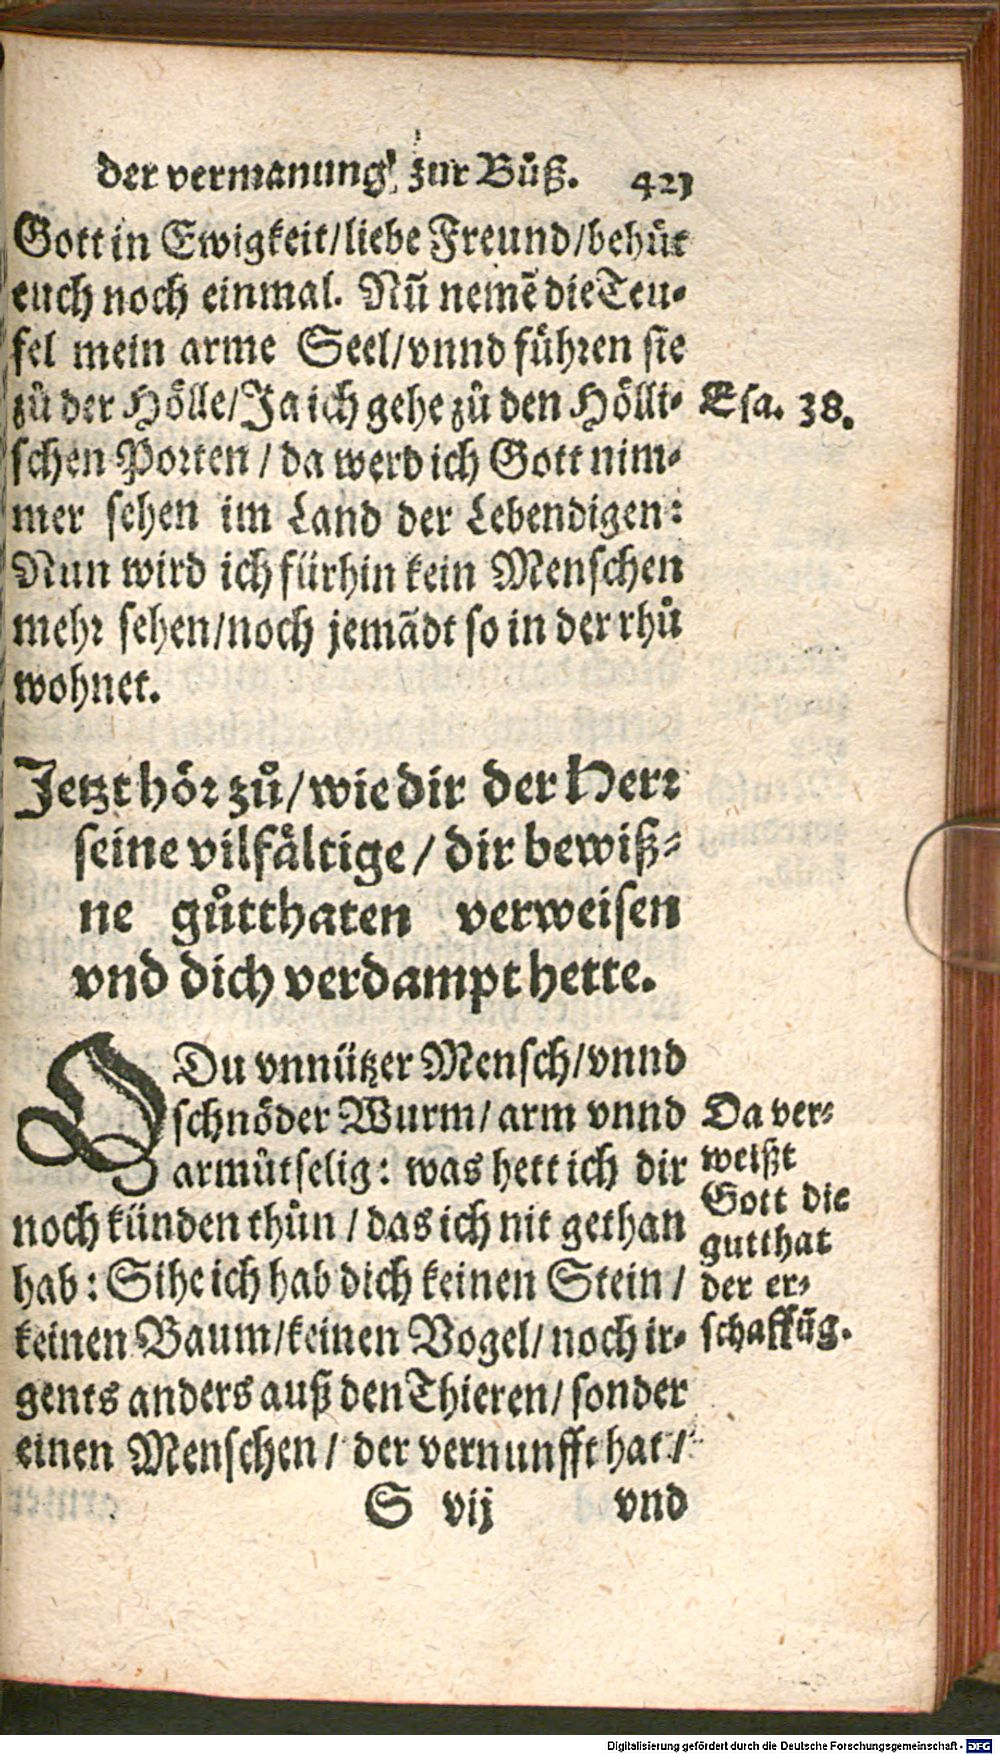 der vermanung zur Bůß. 421
Gott in Ewigkeit/liebe Freund/behůt
euch noch einmal. Nũ nemẽ die Teu-
fel mein arme Seel/vnnd führen sie
zů der Hölle/Ja ich gehe zů den Hölli-
schen Porten / da werd ich Gott nim-
mer sehen im Land der Lebendigen:
Nun wird ich fürhin kein Menschen
mehr sehen/noch jemãdt so in der rhů
wohnet.
Esa. 38.
Jetzt hör zů/wie dir der Herr
seine vilfåltige / dir bewiß-
ne gůtthaten verweisen
vnd dich verdampt hette.
O Du vnnützer Mensch/vnnd
schnöder Wurm/ arm vnnd
armůtselig: was hett ich dir
noch künden thůn / das ich nit gethan
hab: Sihe ich hab dich keinen Stein /
keinen Baum/keinen Vogel/ noch ir-
gents anders auß den Thieren/ sonder
einen Menschen / der vernunfft hat /
Da ver-
weißt
Gott die
gutthat
der er-
schaffũg.
S vij vnd
Digitalisierung gefördert durch die Deutsche Forschungsgemeinschaft - DFG